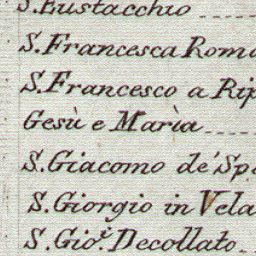 S. Eustacchio
S. Francesca Roma
S. Francesco a Rip
Gesù e Marìa
S. Giacomo de' Spa
S. Giorgio in Vela
S. Gio.̣ Decollato